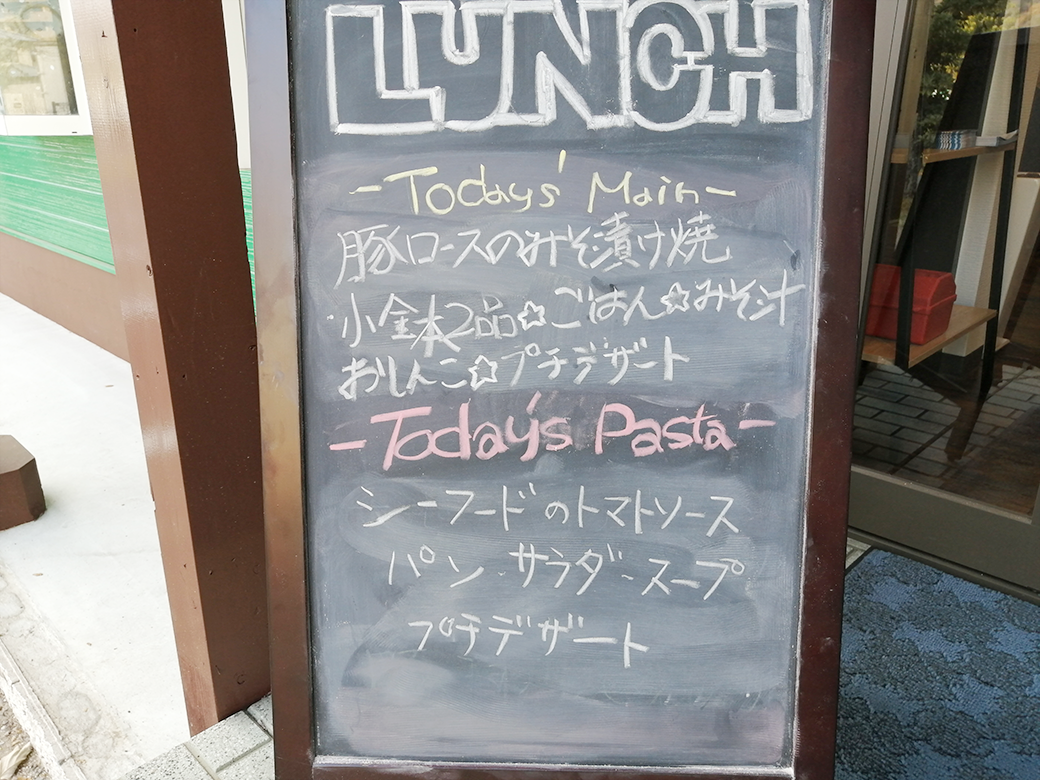 LUNCH
-Todays' Main-
豚ロースのみそ漬け焼
小鉢2品☆ごはん☆みそ汁
おしんこ☆プチデザート
-Today's Pasta-
シーフードのトマトソース
パン・サラダ・スープ
プチデザート